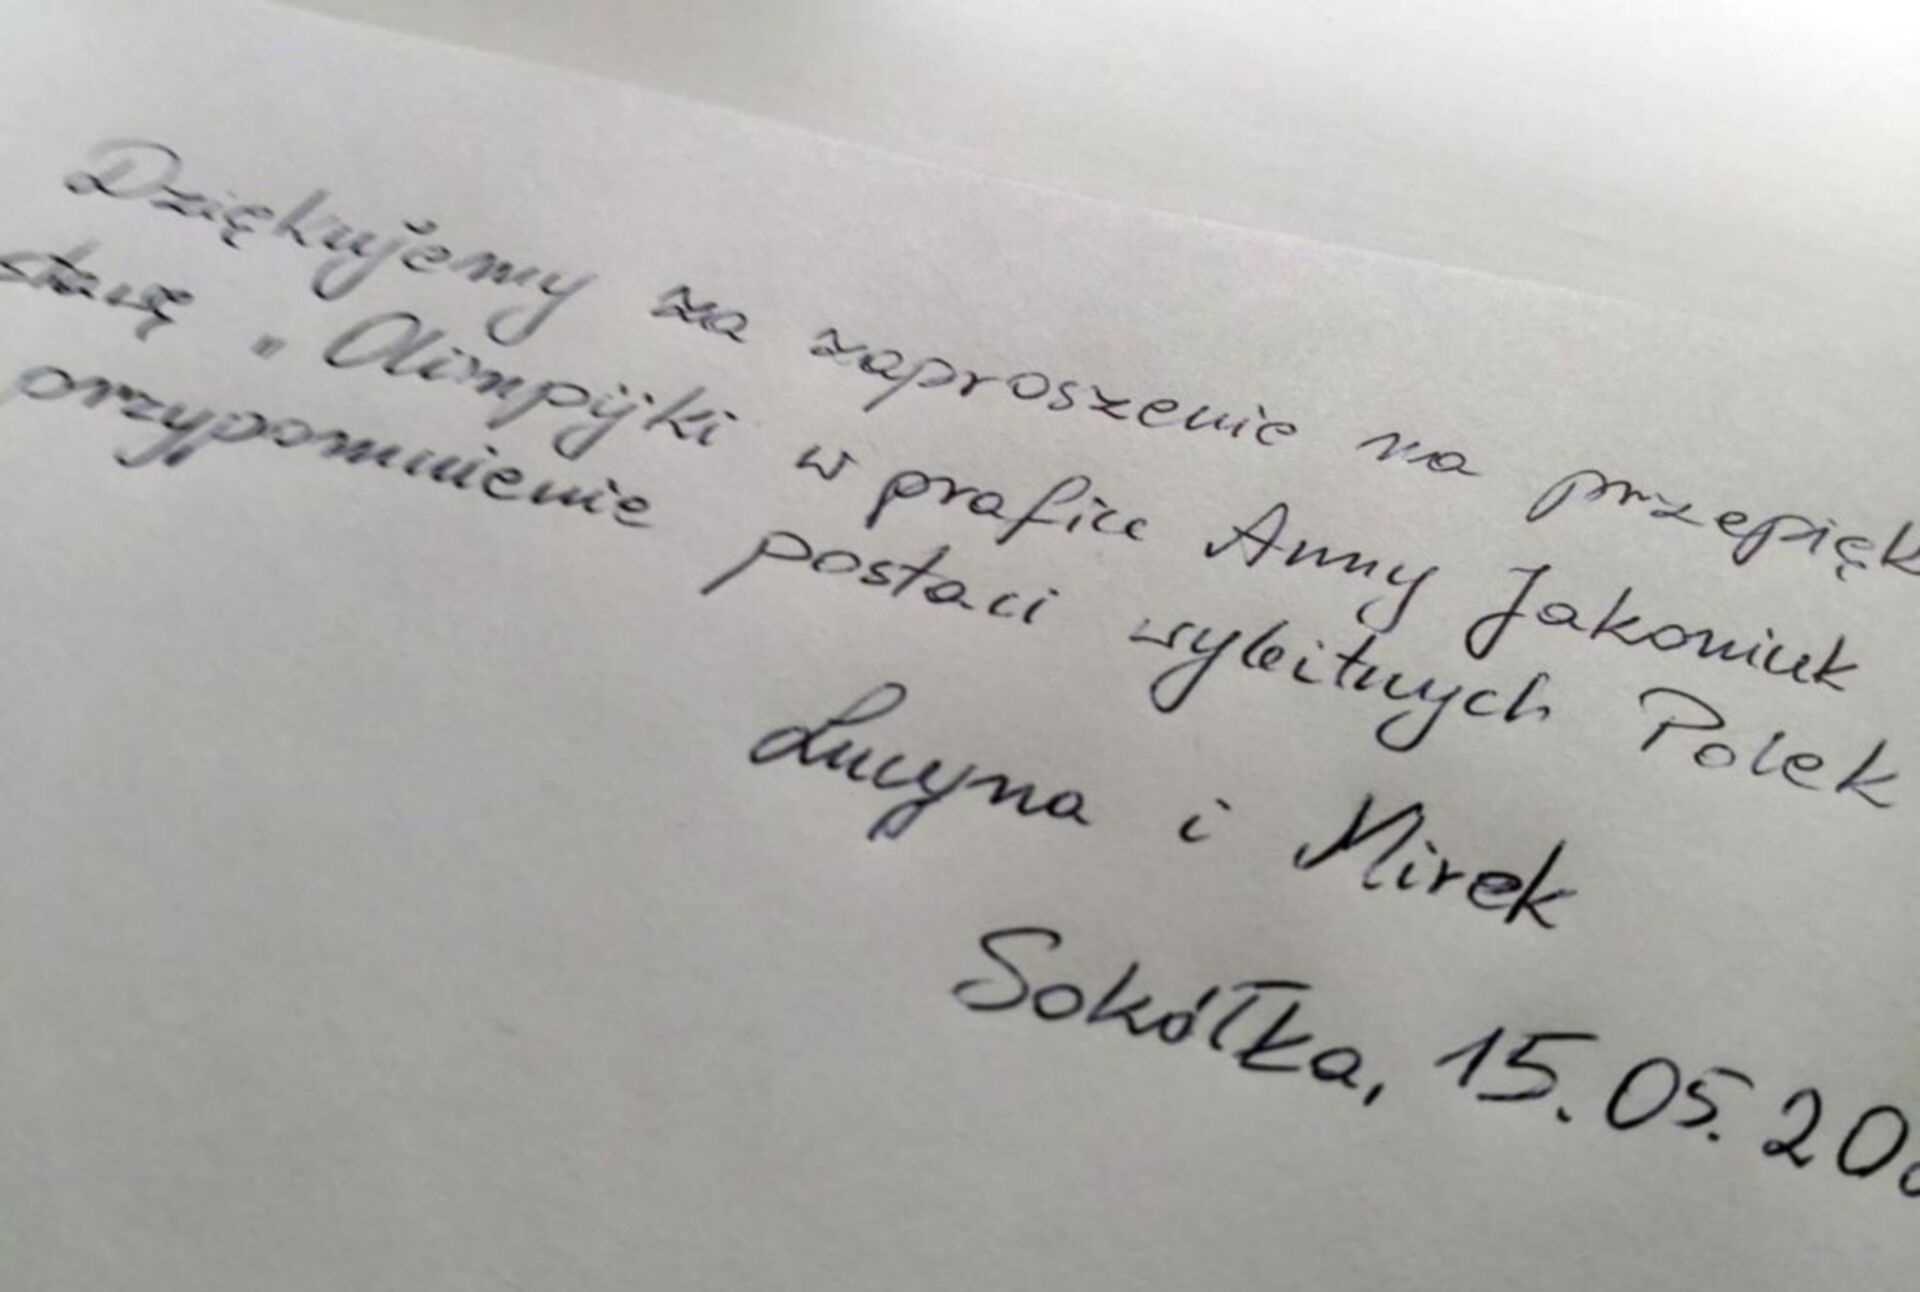 Dziękujemy za zaproszenie na przepięk
stawę „Olimpijki w grafice Anny Jakoniuk
przypomnienie postaci wybitnych Polek
Lucyna i Mirek
Sokółka, 15.05.20